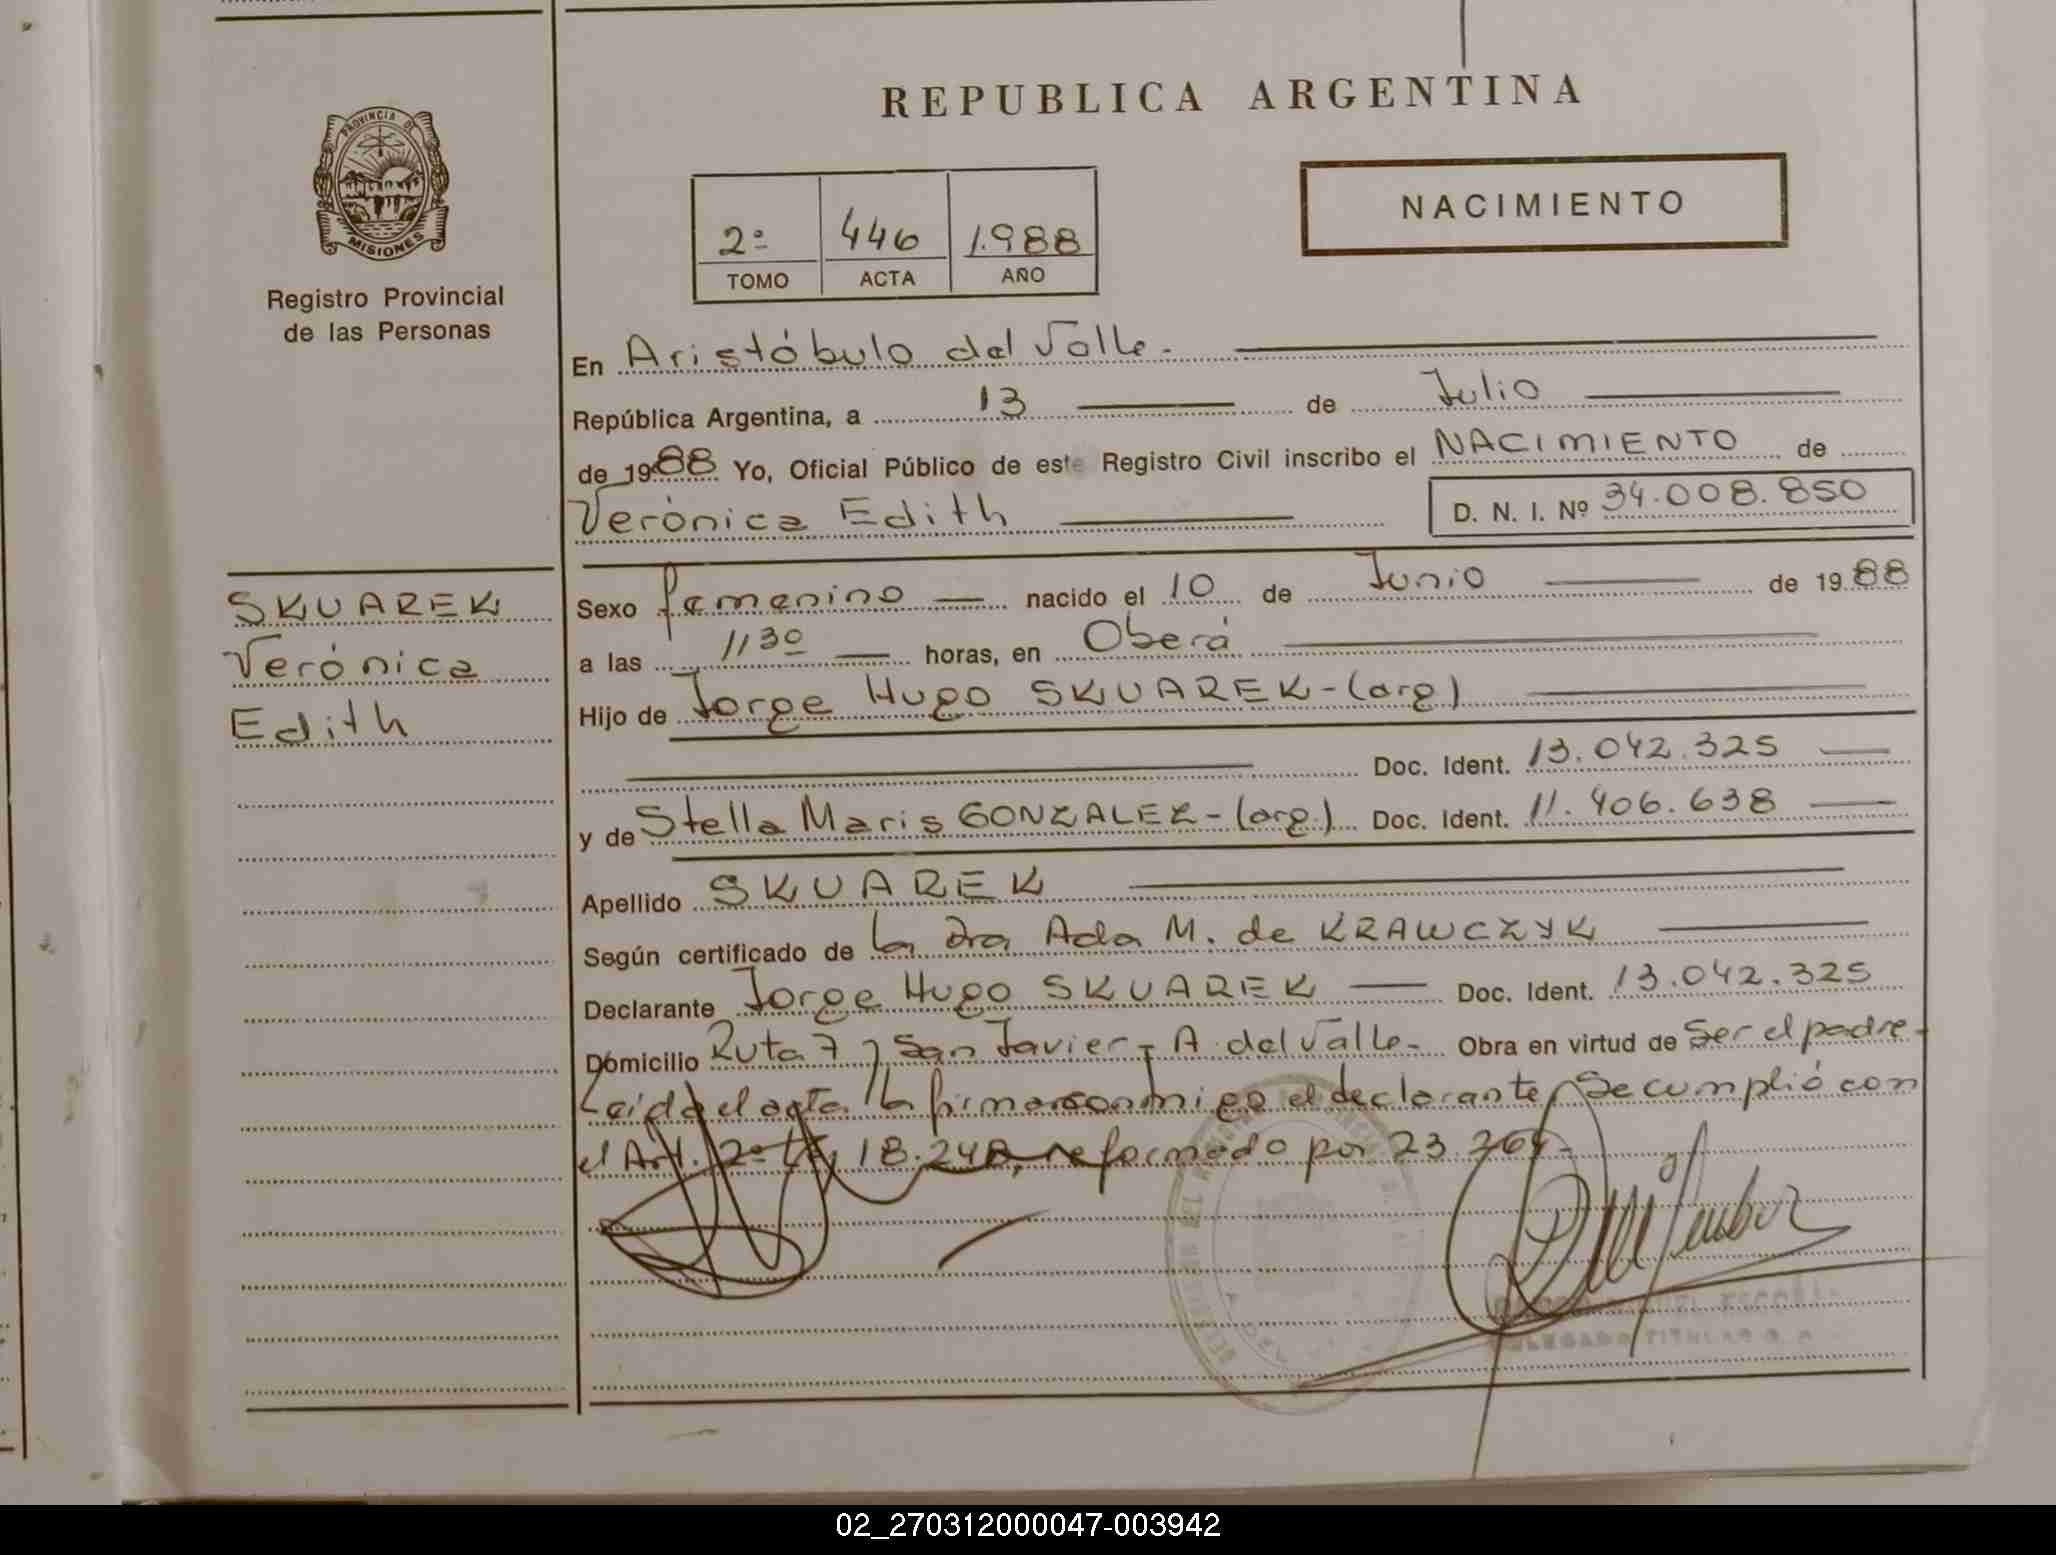 REPUBLICA ARGENTINA
PROVINCIA DE
MISIONES
Registro Provincial
de las Personas
NACIMIENTO
2º 446 1.988
TOMO ACTA AÑO
En Aristóbulo del Valle.-
República Argentina, a 13 de Julio
de 1988 Yo, Oficial Público de este Registro Civil inscribo el NACIMIENTO de
Verónica Edith D. N. I. Nº 34.008.850
SKUAREK
Verónica
Edith
Sexo femenino nacido el 10 de Junio de 1988
a las 1130 horas, en Oberá
Hijo de Jorge Hugo SKUAREK-(arg)
Doc. Ident. 13.042.325
y de Stella Maris GONZALEZ-(arg.) Doc. Ident. 11.406.638
Apellido SKUAREK
Según certificado de la Dra Ada M. de KRAWCZYK
Declarante Jorge Hugo SKUAREK Doc. Ident. 13.042.325
Domicilio Ruta 7 y San Javier- A. del Valle- Obra en virtud de Ser el padre-
Leída el acta la firma conmigo el declarante, Se cumplió con
el Art. 2º 18.248, reformado por 23.264-
DELEGADO TITULAR
02_270312000047-003942